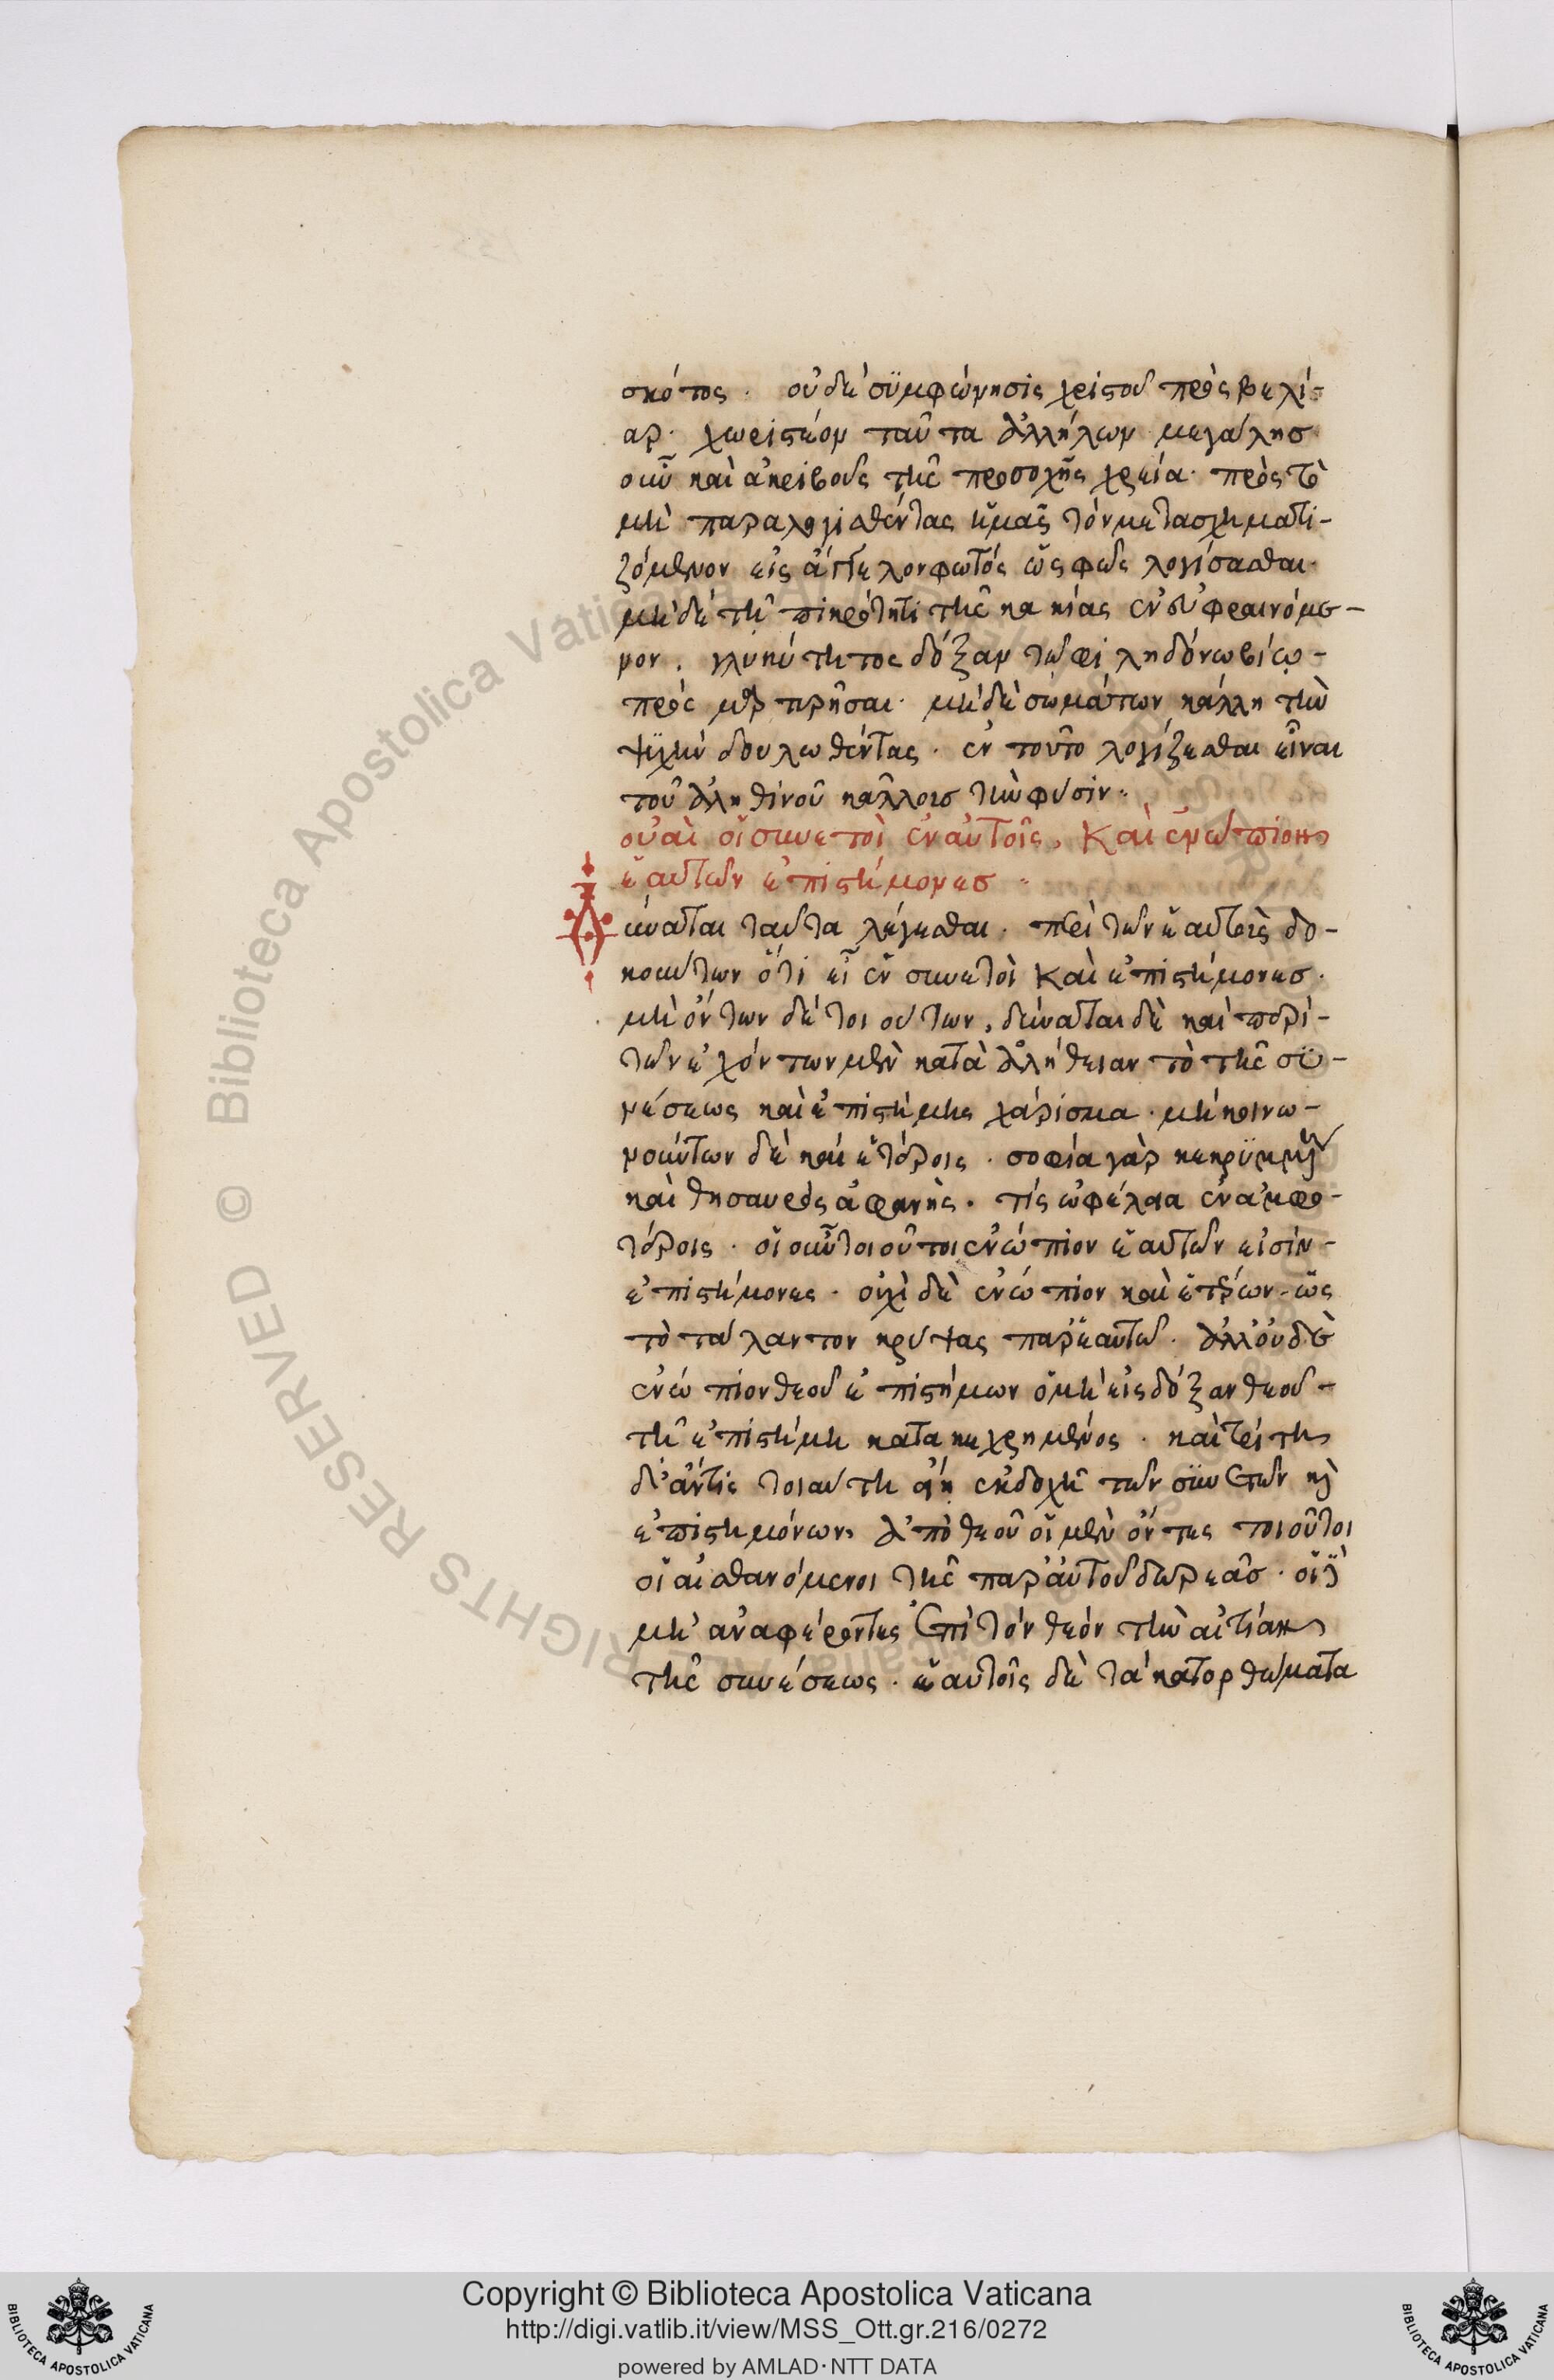 σκότος. οὐδὲ συμφώνησις χριστοῦ πρὸς βελί-
αρ. χωριστέον ταῦτα ἀλλήλων. μεγάλησ
οὖν καὶ ἀκριβοῦς τῆς προσοχῆς χρεία. πρὸς τὸ
μὴ παραλογισθέντας ἡμᾶς τὸν μετασχηματι-
ζόμενον εἰς ἄγγελον φωτός ὡς φῶς λογίσασθαι.
μὴ δὲ τῇ πικρότητι τῆς κακίας ἐνευφραινόμε-
νον. γλυκύτητος δόξαν τῷ φιληδόνῳ βίῳ-
προσμαρτυρῆσαι. μὴ δὲ σωμάτων κάλλη τὴν
ψυχὴν δουλωθέντας. ἐν τούτο λογίζεσθαι εἶναι
τοῦ ἀληθινοῦ κάλλους τὴν φύσιν.
οὐαὶ οἱ συνετοὶ ἐν αὐτοῖς, καὶ ἐνώπιον
ἑαυτῶν ἐπιστήμονεσ.
Δύναται ταῦτα λέγεσθαι. περὶ τῶν ἑαυτοὺς δο-
κούντων ὅτι εἶεν συνετοὶ καὶ ἐπιστήμονεσ.
μὴ ὄντων δὲ τοιούτων, δύναται δὲ καὶ περὶ-
τῶν ἐχόντων μὲν κατὰ ἀλήθειαν τὸ τῆς συ-
νέσεως καὶ ἐπιστήμης χάρισμα. μὴ κοινω-
νούντων δὲ καὶ ἑτέροις. σοφία γὰρ κεκρυμμένη
καὶ θησαυρὸς ἀφανὴς. τίς ὠφέλεια ἐν ἀμφο-
τέροις. οἱ οὖν τοιοῦτοι ἐνώπιον ἑαυτῶν εἰσίν-
ἐπιστήμονες. οὐχὶ δὲ ἐνώπιον καὶ ἑτέρων. ὡς
τὸ τάλαντον κρύψας παρ' ἑαυτῶ. ἀλλ' οὐδὲ
ἐνώπιον θεοῦ ἐπιστήμων ὁ μὴ εἰς δόξαν θεοῦ-
τῇ ἐπιστήμῃ κατακεχρημένος. καὶ τρίτη
δ' ἄν τις τοιαύτη εἴη ἐκδοχὴ τῶν συνετῶν καὶ
ἐπιστημόνων, ἀπὸ θεοῦ οἱ μὲν ὄντες τοιοῦτοι
οἱ αἰσθανόμενοι τῆς παρ' αὐτοῦ δωρεᾶσ. οἱ δὲ
μὴ ἀναφέροντες ἐπὶ τὸν θεὸν τὴν αἰτίαν
τῆς συνέσεως. ἑαυτοῖς δὲ τὰ κατορθώματα
Copyright © Biblioteca Apostolica Vaticana
http://digi.vatlib.it/view/MSS_Ott.gr.216/0272
powered by AMLAD·NTT DATA